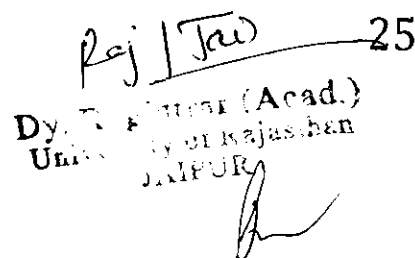 Raj | Jaw
25
Dy. Registrar (Acad.)
University of Rajasthan
JAIPUR